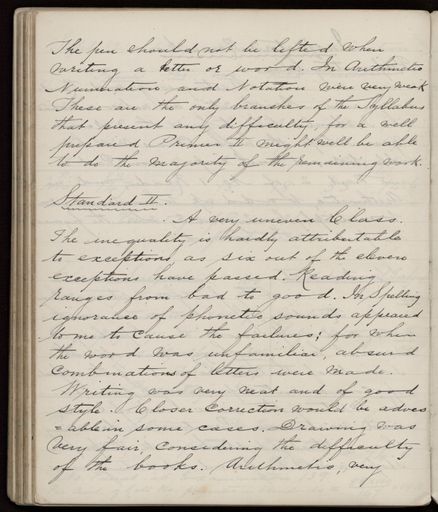 The pen should not be lifted when
writing a letter or word. In Arithmetic
Numeration and Notation were very weak
These are the only branches of the Syllabus
that present any difficulty, for a well
prepared Primer II might well be able
to do the majority of the remaining work.
Standard II.
A very uneven Class.
The inequality is hardly attributable
to exceptions, as six out of the eleven
exceptions have passed. Reading
ranges from bad to good. In Spelling
ignorance of phonetic sounds appeared
to me to cause the failures; for when
the word was unfamiliar, absurd
combinations of letters were made.
Writing was very neat and of good
style. Closer correction would be advis
=able in some cases. Drawing was
very fair, considering the difficulty
of the books. Arithmetic, very